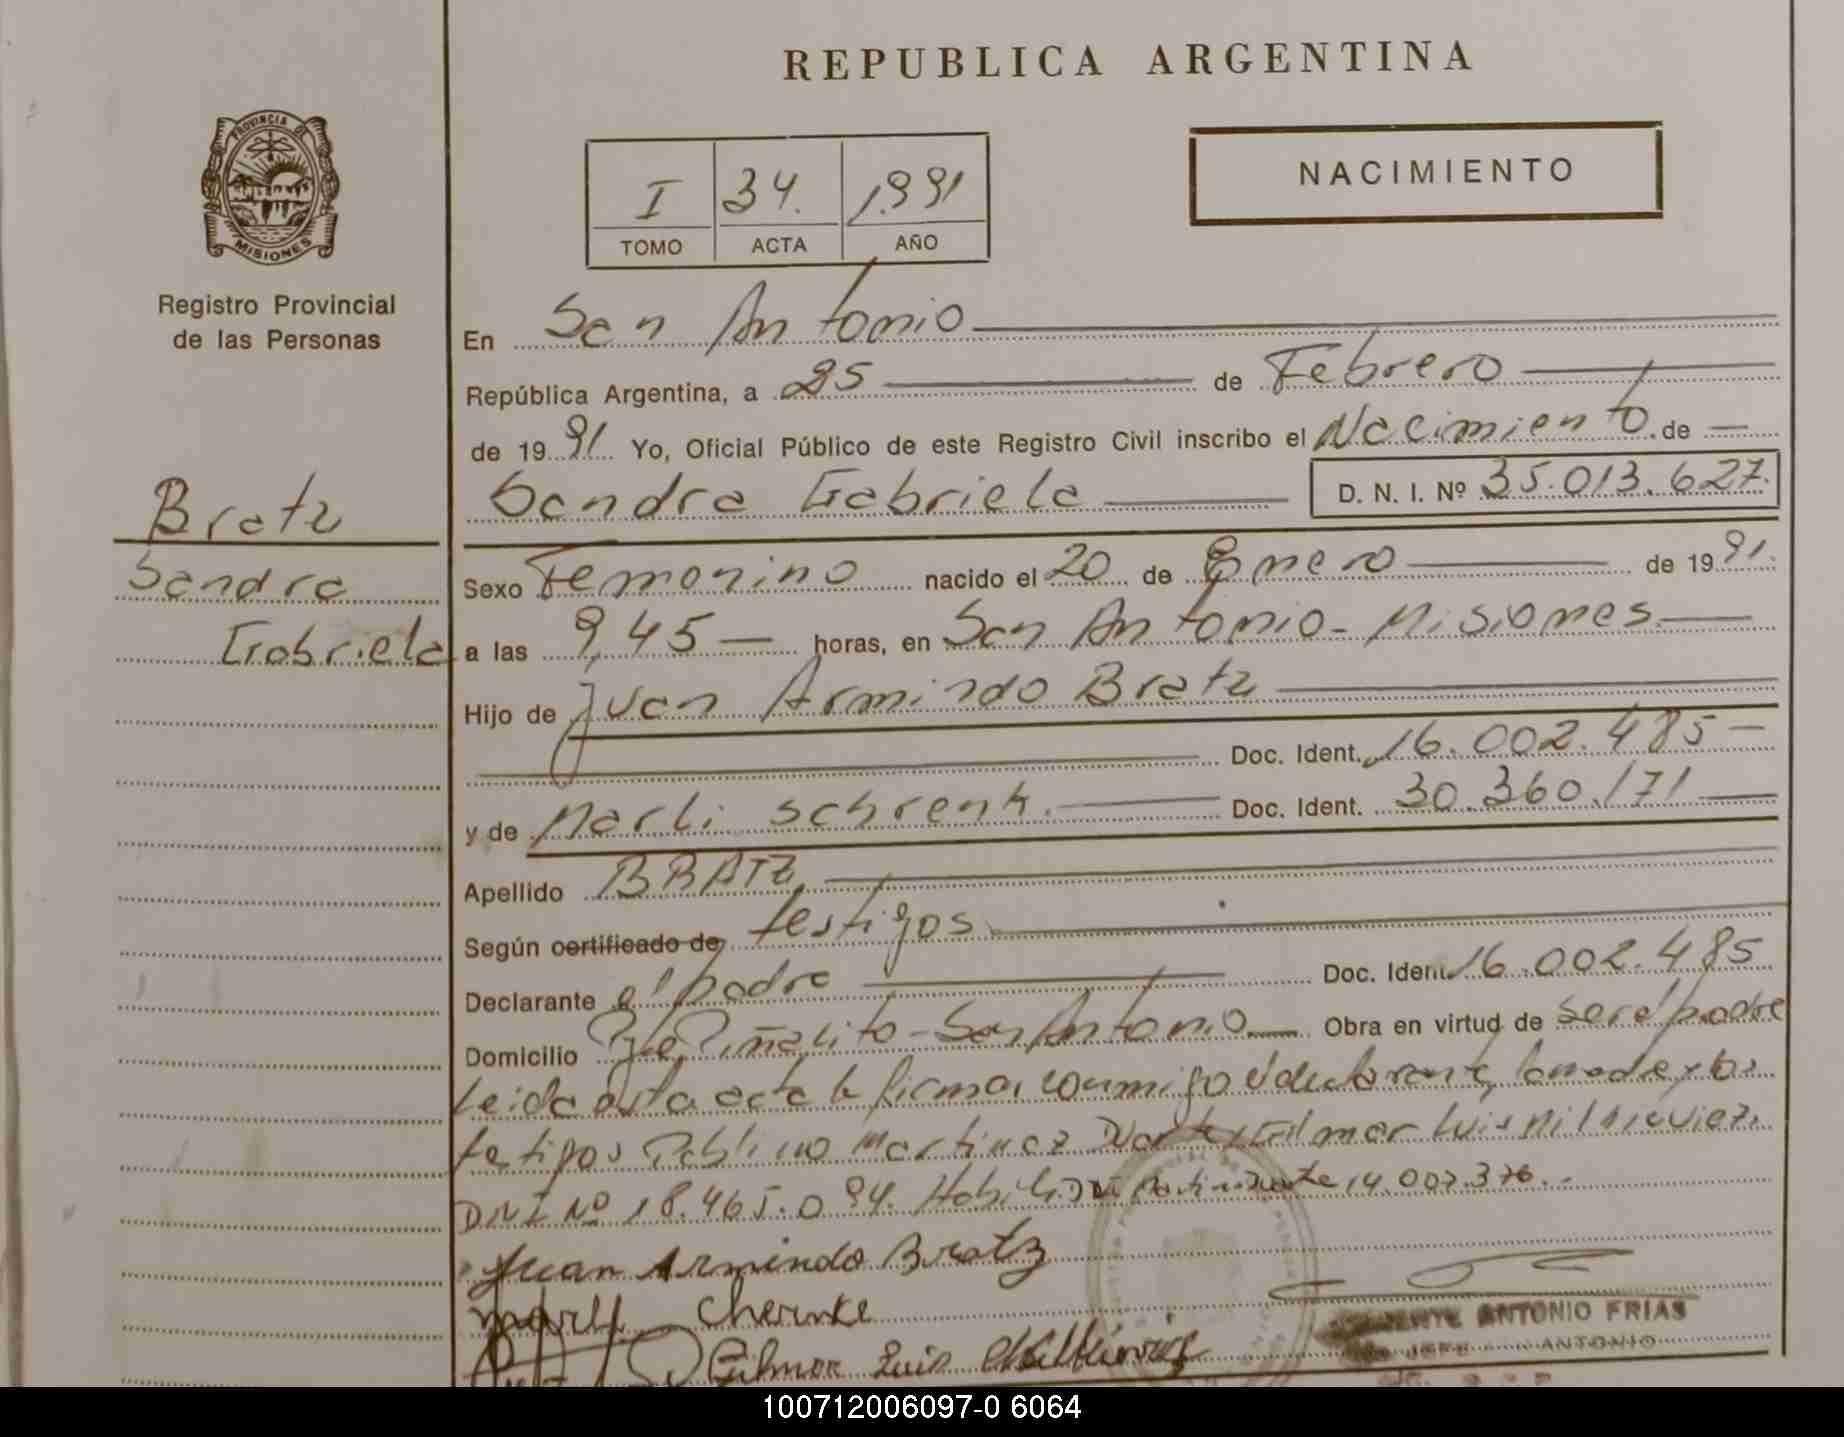 REPUBLICA ARGENTINA
PROVINCIA DE
MISIONES
Registro Provincial
de las Personas
I 34. 1.991
TOMO ACTA AÑO
NACIMIENTO
En San Antonio
República Argentina, a 25 de Febrero
de 19 91 Yo, Oficial Público de este Registro Civil inscribo el Nacimiento de
Sandra Gabriela D. N. I. Nº 35.013.627.
Bratz
Sandra
Gabriela
Sexo Femenino nacido el 20 de Enero de 19 91.
a las 9,45 horas, en San Antonio - Misiones
Hijo de Juan Armindo Bratz
Doc. Ident. 16.002.485
y de Marli Schrenk. Doc. Ident. 30.360.171
Apellido BRATZ
Según certificado de testigos
Declarante el padre Doc. Ident. 16.002.485
Domicilio Piñalito - San Antonio Obra en virtud de ser el padre
Leida esta acta la firman conmigo el declarante, la madre y los
testigos Martinez Duarte y Gilmar Luis
DNI Nº 18.465.094. 14.007.376.
Juan Armindo Bratz
Marli Chernke
Gilmar Luis
ANTONIO FRIAS
JEFE ANTONIO
100712006097-0 6064